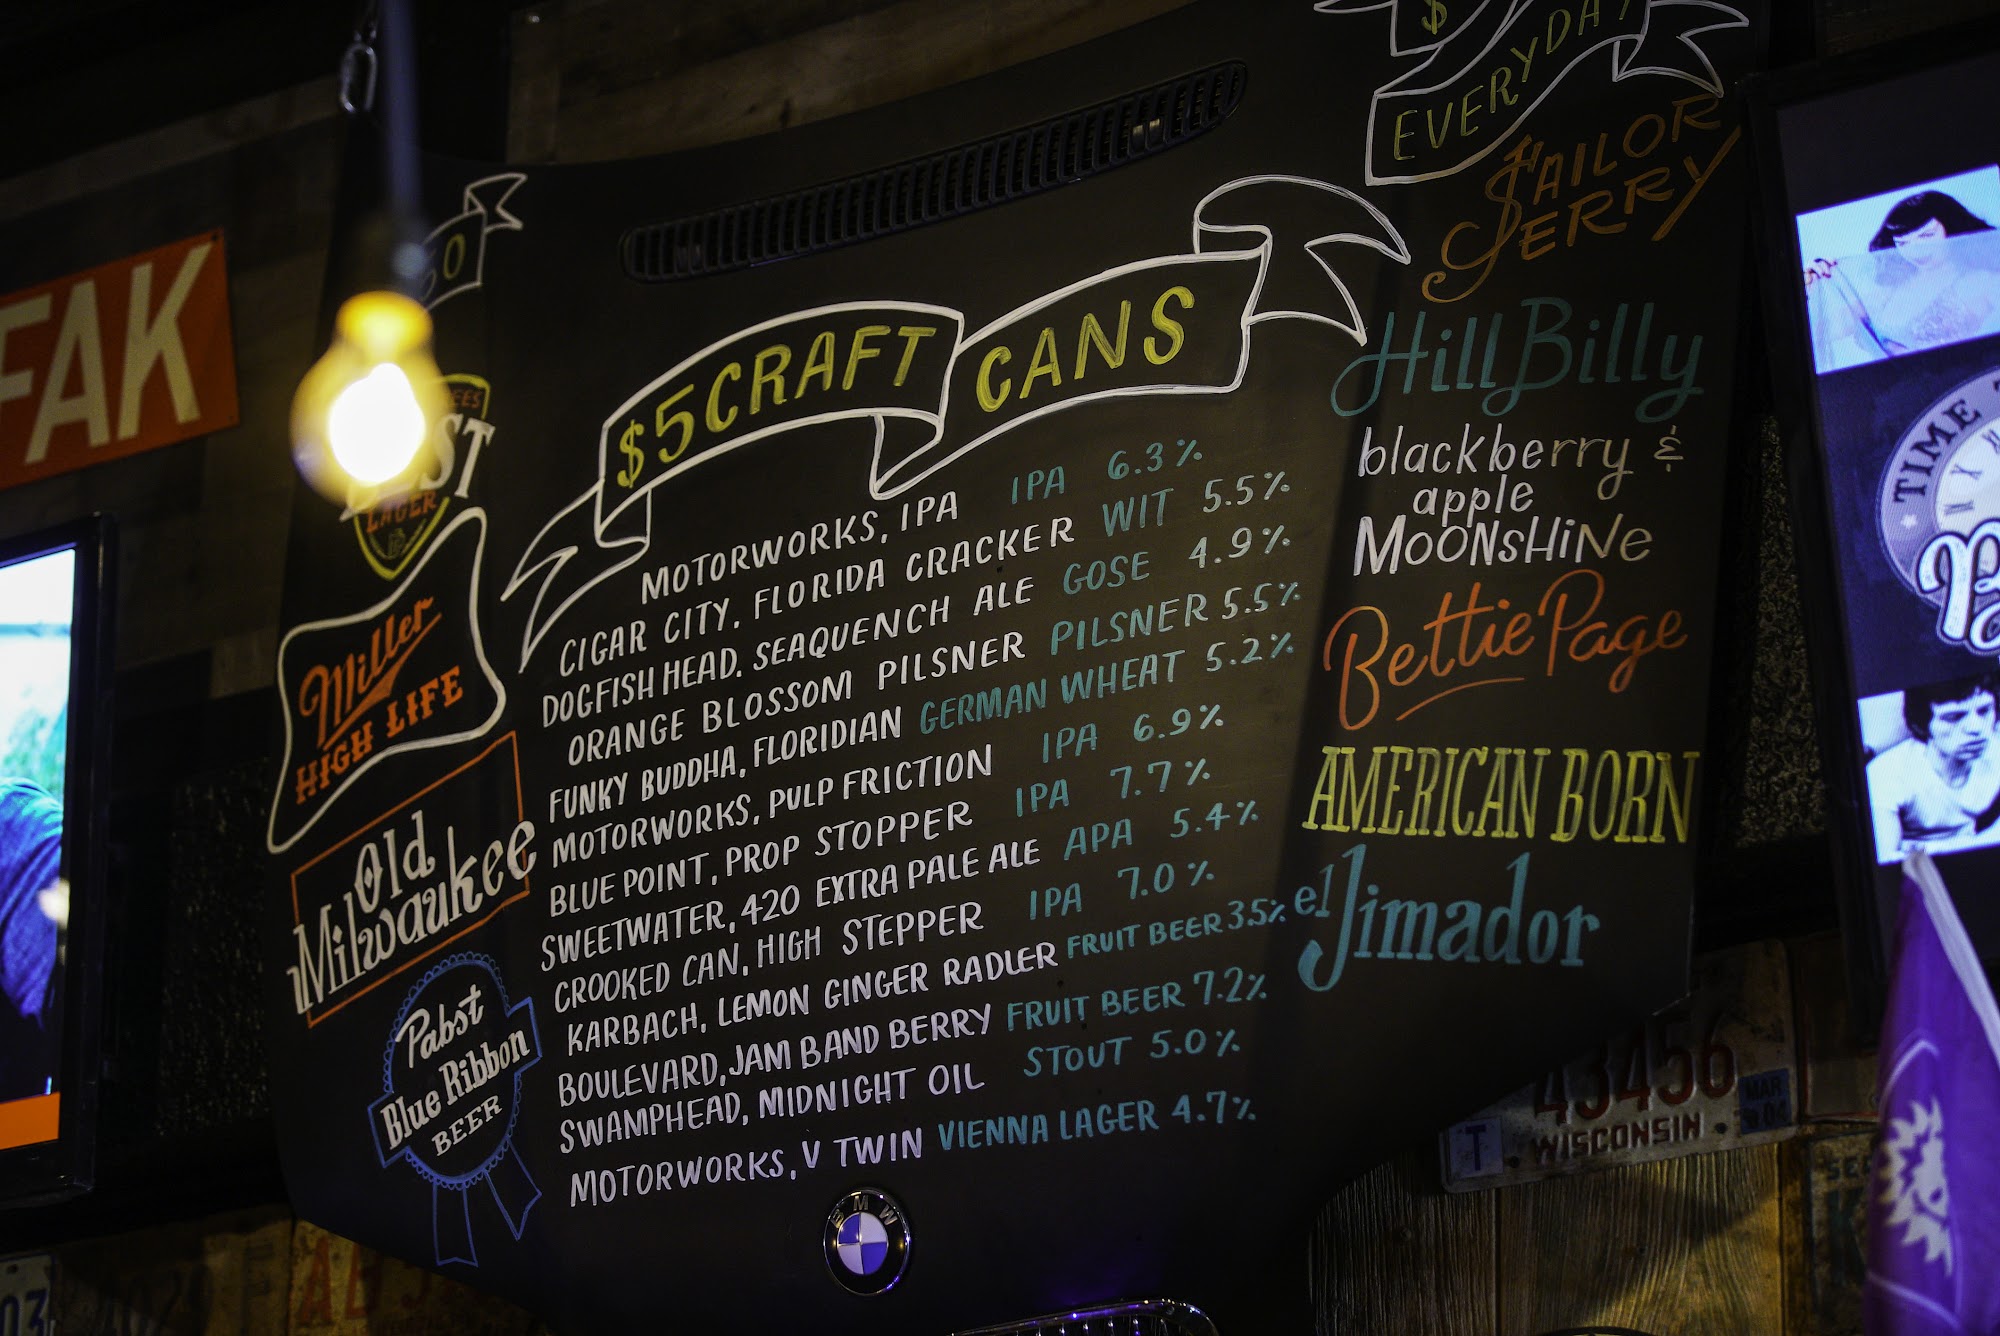 FAK
0
LAGER
Miller
HIGH LIFE
Old
Milwaukee
Pabst
Blue Ribbon
BEER
$5 CRAFT CANS
MOTORWORKS, IPA IPA 6.3%
CIGAR CITY. FLORIDA CRACKER WIT 5.5%
DOGFISH HEAD. SEAQUENCH ALE GOSE 4.9%
ORANGE BLOSSOM PILSNER PILSNER 5.5%
FUNKY BUDDHA, FLORIDIAN GERMAN WHEAT 5.2%
MOTORWORKS, PULP FRICTION IPA 6.9%
BLUE POINT, PROP STOPPER IPA 7.7%
SWEETWATER, 420 EXTRA PALE ALE APA 5.4%
CROOKED CAN, HIGH STEPPER IPA 7.0%
KARBACH, LEMON GINGER RADLER FRUIT BEER 3.5%
BOULEVARD, JAM BAND BERRY FRUIT BEER 7.2%
SWAMPHEAD, MIDNIGHT OIL STOUT 5.0%
MOTORWORKS, V TWIN VIENNA LAGER 4.7%
BMW
$
EVERYDAY
SAILOR
JERRY
HillBilly
blackberry &
apple
MOONSHiNe
Bettie Page
AMERICAN BORN
el Jimador
TIME
43456
T WISCONSIN MAR
03